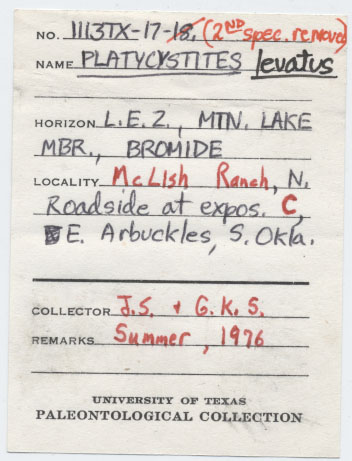 NO. 1113TX-17-18. (2ND spec. removed)
NAME PLATYCYSTITES levatus
HORIZON L.E.Z., MTN. LAKE
MBR., BROMIDE
LOCALITY McLish Ranch, N.
Roadside at expos. C,
E. Arbuckles, S. Okla.
COLLECTOR J.S. + G.K.S.
REMARKS Summer, 1976
UNIVERSITY OF TEXAS
PALEONTOLOGICAL COLLECTION